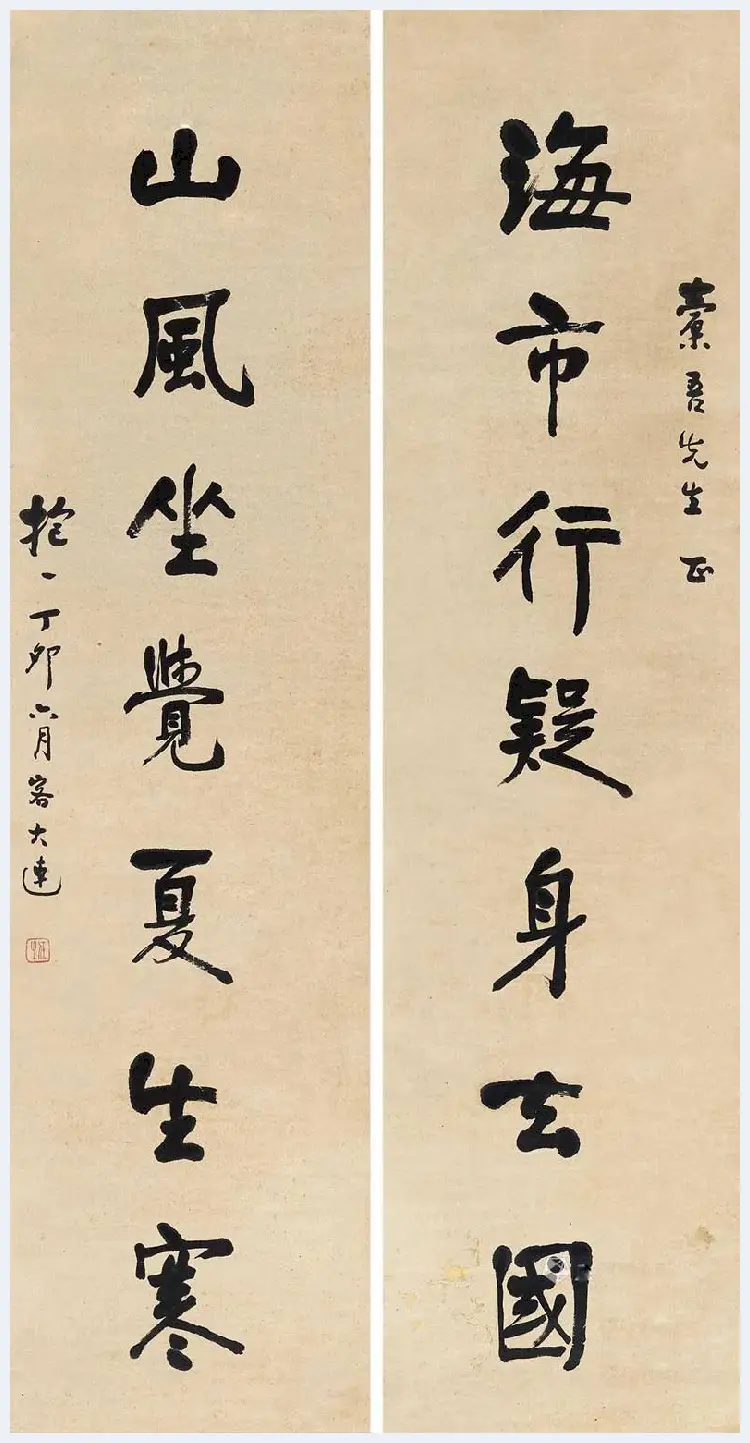 海市行疑身去國
吾先生正
山風坐覺夏生寒
抱一丁卯六月客大連